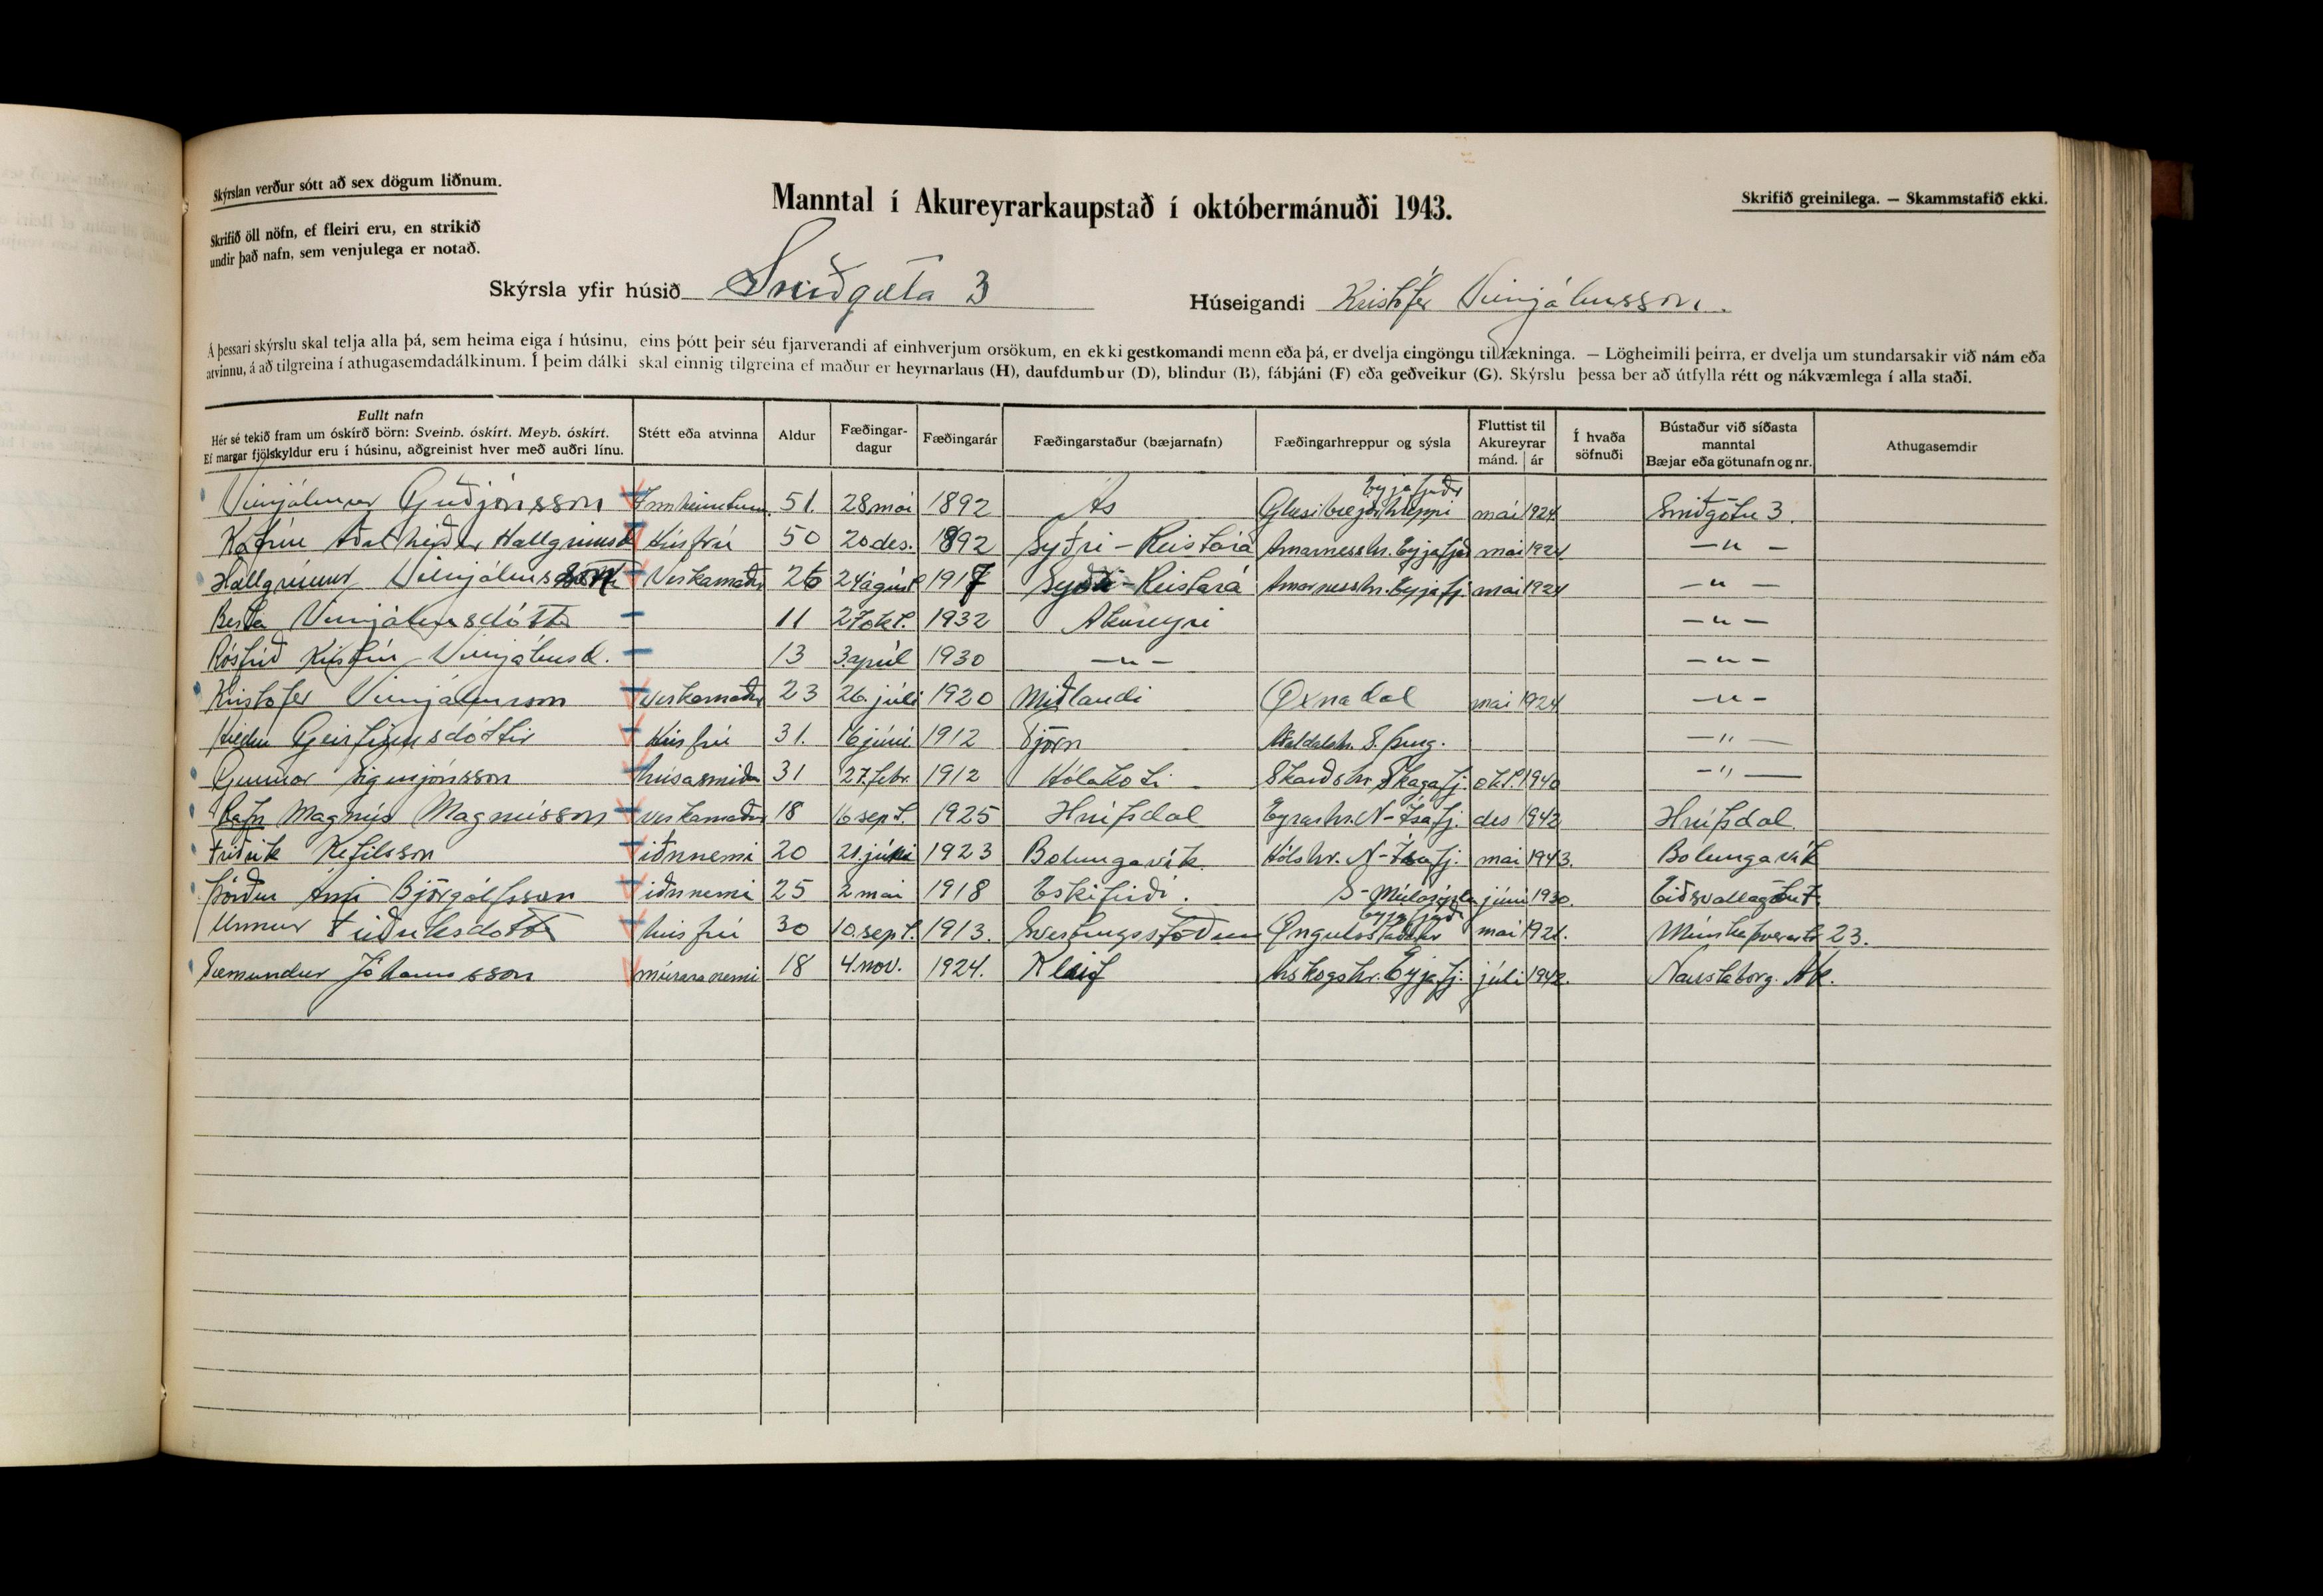 Skýrslan verður sótt að sex dögum liðnum.
Manntal í Akureyrarkaupstað í októbermánuði 1943.
Skrifið greinilega. — Skammstafið ekki.
Skrifið öll nöfn, ef fleiri eru, en strikið
undir það nafn, sem venjulega er notað.
Skýrsla yfir húsið Smiðgata 3 Húseigandi Kristófer Vilhjálmsson.
Á þessari skýrslu skal telja alla þá, sem heima eiga í húsinu, eins þótt þeir séu fjarverandi af einhverjum orsökum, en ekki gestkomandi menn eða þá, er dvelja eingöngu til lækninga. — Lögheimili þeirra, er dvelja um stundarsakir við nám eða
atvinnu, á að tilgreina í athugasemdadálkinum. Í þeim dálki skal einnig tilgreina ef maður er heyrnarlaus (H), daufdumbur (D), blindur (B), fábjáni (F) eða geðveikur (G). Skýrslu þessa ber að útfylla rétt og nákvæmlega í alla staði.
Fullt nafn
Hér sé tekið fram um óskírð börn: Sveinb. óskírt. Meyb. óskírt.
Ef margar fjölskyldur eru í húsinu, aðgreinist hver með auðri línu.
Stétt eða atvinna
Aldur
Fæðingar-
dagur
Fæðingarár
Fæðingarstaður (bæjarnafn)
Fæðingarhreppur og sýsla
Fluttist til
Akureyrar
mánd. ár
Í hvaða
söfnuði
Bústaður við síðasta
manntal
Bæjar eða götunafn og nr.
Athugasemdir
Vilhjálmur Guðjónsson Innheimtum. 51. 28 mai 1892 Ás Glæsibæjarhreppi Eyjafjarð mai 1924 Smiðgötu 3.
Katrín Aðalheiður Hallgrimsd Húsfrú 50 20 des. 1892 Syðri-Reistará Arnarnesshr. Eyjafjað mai 1924 — " —
Hallgrímur Vilhjálmsson Verkamaður 26 24 ágúst 1917 Syðri-Reistará Arnarnesshr. Eyjafj. mai 1924 — " —
Berta Vilhjálmsdóttir 11 27 okt. 1932 Akureyri — " —
Rósfríð Kristín Vilhjálmsd. 13 3. apríl 1930 — " — — " —
Kristófer Vilhjálmsson verkamaður 23 26. júli 1920 Miðlandi Öxnadal mai 1924 — " —
Geirfinnsdóttir Húsfrú 31. 16 júni 1912 Tjörn Aðaldalshr. S. Þing. — " —
Gunnar Sigurjónsson húsasmiður 31 27. febr. 1912 Hólakoti Skarðshr. Skagafj. okt. 1940 — " —
Rafn Magnús Magnússon verkamaður 18 16 sept. 1925 Hnífsdal Eyrarhr. N-Ísafj. des 1942 Hnífsdal
Friðrik Ketilsson iðnnemi 20 21. júní 1923 Bolungavík Hólshr. N-Ísafj. mai 1943. Bolungavík
Þórður Árni Björgólfsson iðnnemi 25 2 mai 1918 Eskifirði. S-Múlasýsla júni 1930. Eiðsvallagötu 7.
Unnur Friðriksdóttir húsfrú 30 10. sept. 1913. Sverting­sstöðum Öngulsstaðahr Eyjafjarð mai 1921. Munkaþverárstr 23.
Sæmundur Jóhannsson múraranemi 18 4. nov. 1924. Kleif Árskogshr. Eyjafj. júli 1942. Naustaborg. Ak.